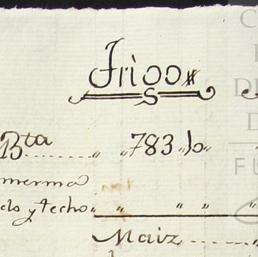 Trigo
Bta....... " " 783 "
merma
elo y techo " " " "
Maiz....... "